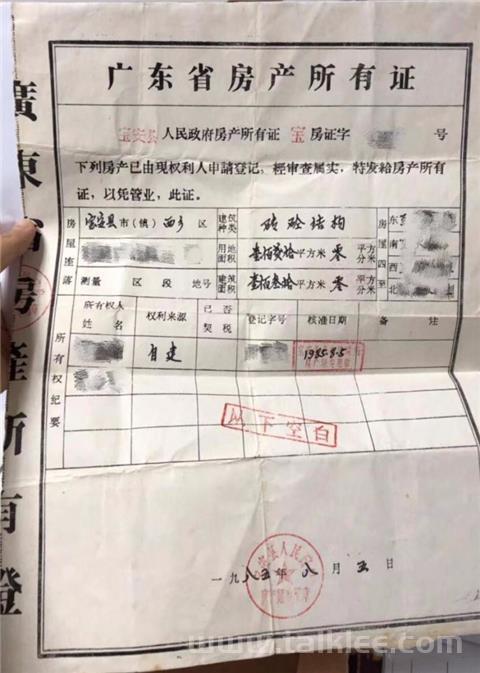 广东省房产所有证
宝安县人民政府房产所有证 宝 房证字 号
下列房产已由现权利人申請登记，經审查属实，特发給房产所有
证，以凭管业，此证。
房屋座落 宝安县市（鎮）西乡 区 建筑种类 砖砼结构 房屋四至 东
用地面积 壹佰 拾平方米 零 平方分米 南
西
測量 区 段 地号 建筑面积 壹佰叁拾平方米 零 平方分米 北
所有权纪要 所有权人姓名 权利来源 已否契税 登记字号 核准日期 备 注
自建 1985.8.5
从下空白
一九八五年 八 月 五 日
廣東省房產所有證
www.talklee.com